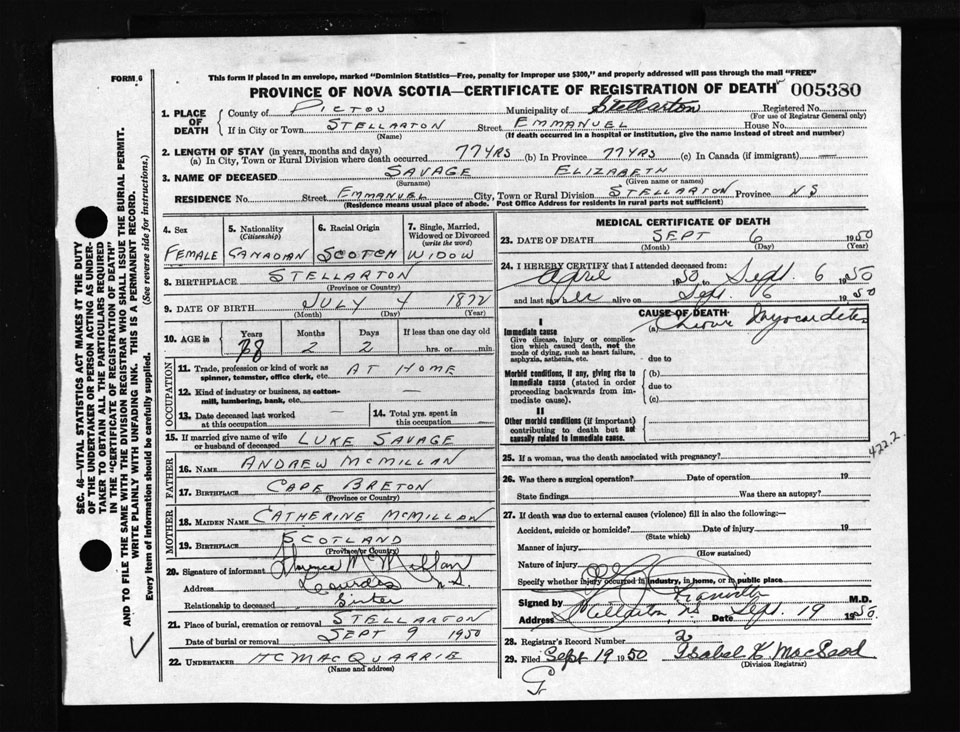 FORM 6
This form if placed in an envelope, marked "Dominion Statistics—Free, penalty for improper use $300," and properly addressed will pass through the mail "FREE"
PROVINCE OF NOVA SCOTIA—CERTIFICATE OF REGISTRATION OF DEATH 005380
1. PLACE OF DEATH
County of PICTOU Municipality of Stellarton Registered No.
(For use of Registrar General only)
If in City or Town STELLARTON Street EMMANUEL House No.
(Name) (If death occurred in a hospital or institution, give the name instead of street and number)
2. LENGTH OF STAY (in years, months and days)
(a) In City, Town or Rural Division where death occurred 77 YRS (b) In Province 77 YRS (c) In Canada (if immigrant) —
3. NAME OF DECEASED SAVAGE ELIZABETH
(Surname) (Given name or names)
RESIDENCE No. Street EMMANUEL City, Town or Rural Division STELLARTON Province NS
(Residence means usual place of abode. Post Office Address for residents in rural parts not sufficient)
4. Sex
FEMALE
5. Nationality
(Citizenship)
CANADIAN
6. Racial Origin
SCOTCH
7. Single, Married, Widowed or Divorced
(write the word)
WIDOW
8. BIRTHPLACE STELLARTON
(Province or Country)
9. DATE OF BIRTH JULY 4 1872
(Month) (Day) (Year)
10. AGE in
Years Months Days If less than one day
78 2 2 hrs. or min.
OCCUPATION
11. Trade, profession or kind of work as spinner, teamster, office clerk, etc. AT HOME
12. Kind of industry or business, as cotton-mill, lumbering, bank, etc. —
13. Date deceased last worked at this occupation —
14. Total yrs. spent in this occupation
15. If married give name of wife or husband of deceased LUKE SAVAGE
FATHER
16. NAME ANDREW MCMILLAN
17. BIRTHPLACE CAPE BRETON
(Province or Country)
MOTHER
18. MAIDEN NAME CATHERINE MCMILLAN
19. BIRTHPLACE SCOTLAND
(Province or Country)
20. Signature of informant Florence McMillan
Address Lourdes N.S.
Relationship to deceased Sister
21. Place of burial, cremation or removal STELLARTON
Date of burial or removal SEPT 9 1950
22. UNDERTAKER H C MACQUARRIE
(Name and address)
MEDICAL CERTIFICATE OF DEATH
23. DATE OF DEATH SEPT 6 1950
(Month) (Day) (Year)
24. I HEREBY CERTIFY that I attended deceased from:
April 1950 to Sept. 6 1950
and last saw her alive on Sept. 6 1950
CAUSE OF DEATH
I
Immediate cause
Give disease, injury or complication which caused death, not the mode of dying, such as heart failure, asphyxia, asthenia, etc.
(a) Chronic Myocarditis
due to
Morbid conditions, if any, giving rise to immediate cause (stated in order proceeding backwards from immediate cause).
(b)
due to
(c)
II
Other morbid conditions (if important) contributing to death but not causally related to immediate cause.
422.2
25. If a woman, was the death associated with pregnancy?
26. Was there a surgical operation? Date of operation 19
State findings Was there an autopsy?
27. If death was due to external causes (violence) fill in also the following:—
Accident, suicide or homicide? Date of injury 19
(State which)
Manner of injury
(How sustained)
Nature of injury
Specify whether injury occurred in industry, in home, or in public place
Signed by M.D.
Address Stellarton NS Date Sept. 19 1950
28. Registrar's Record Number 2
29. Filed Sept 19 1950 Isabel K. MacLeod
(Division Registrar)
G
SEC. 46—VITAL STATISTICS ACT MAKES IT THE DUTY
OF THE UNDERTAKER OR PERSON ACTING AS UNDER-
TAKER TO OBTAIN ALL THE PARTICULARS REQUIRED
IN THE "CERTIFICATE OF REGISTRATION OF DEATH"
AND TO FILE THE SAME WITH THE DIVISION REGISTRAR WHO SHALL ISSUE THE BURIAL PERMIT.
WRITE PLAINLY WITH UNFADING INK. THIS IS A PERMANENT RECORD.
Every item of information should be carefully supplied. (See reverse side for instructions.)